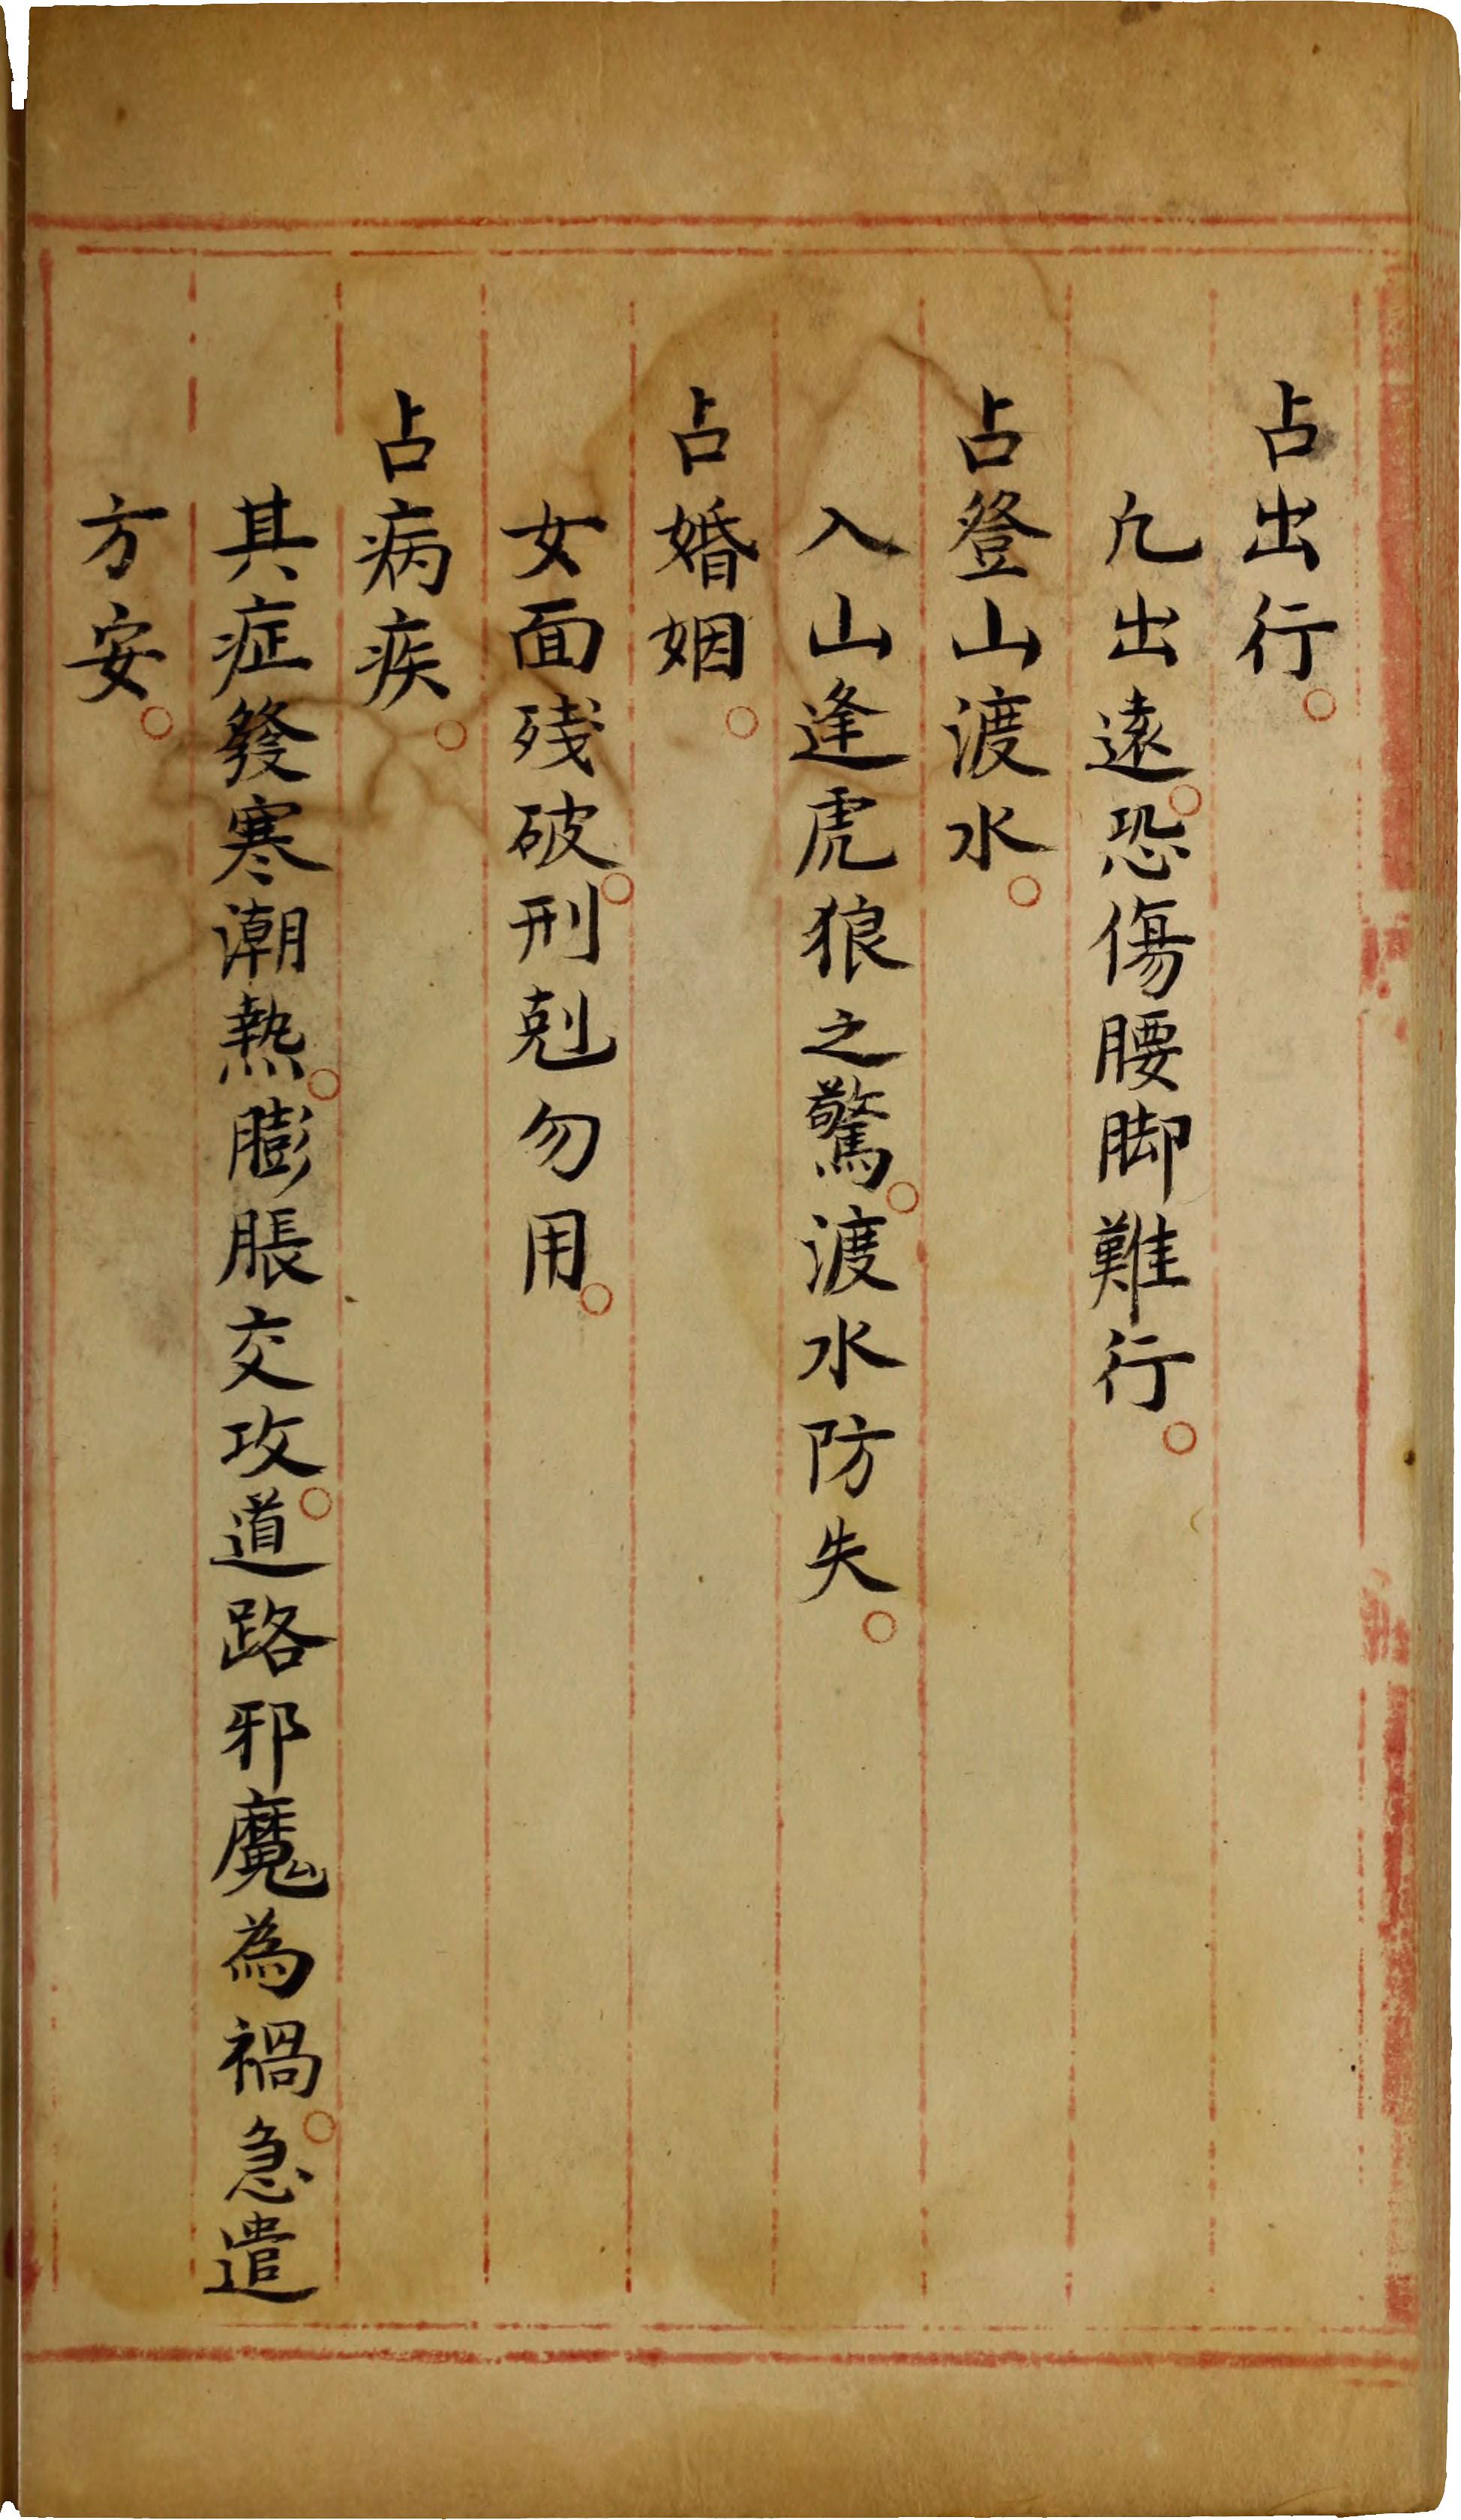 占出行。
凢出遠。恐傷腰脚難行。
占登山渡水。
入山逢虎狼之驚。渡水防失。
占婚姻。
女面残破。刑剋勿用。
占病疾。
其症發寒潮熱。膨脹交攻。道路邪魔為禍。急遣
方安。